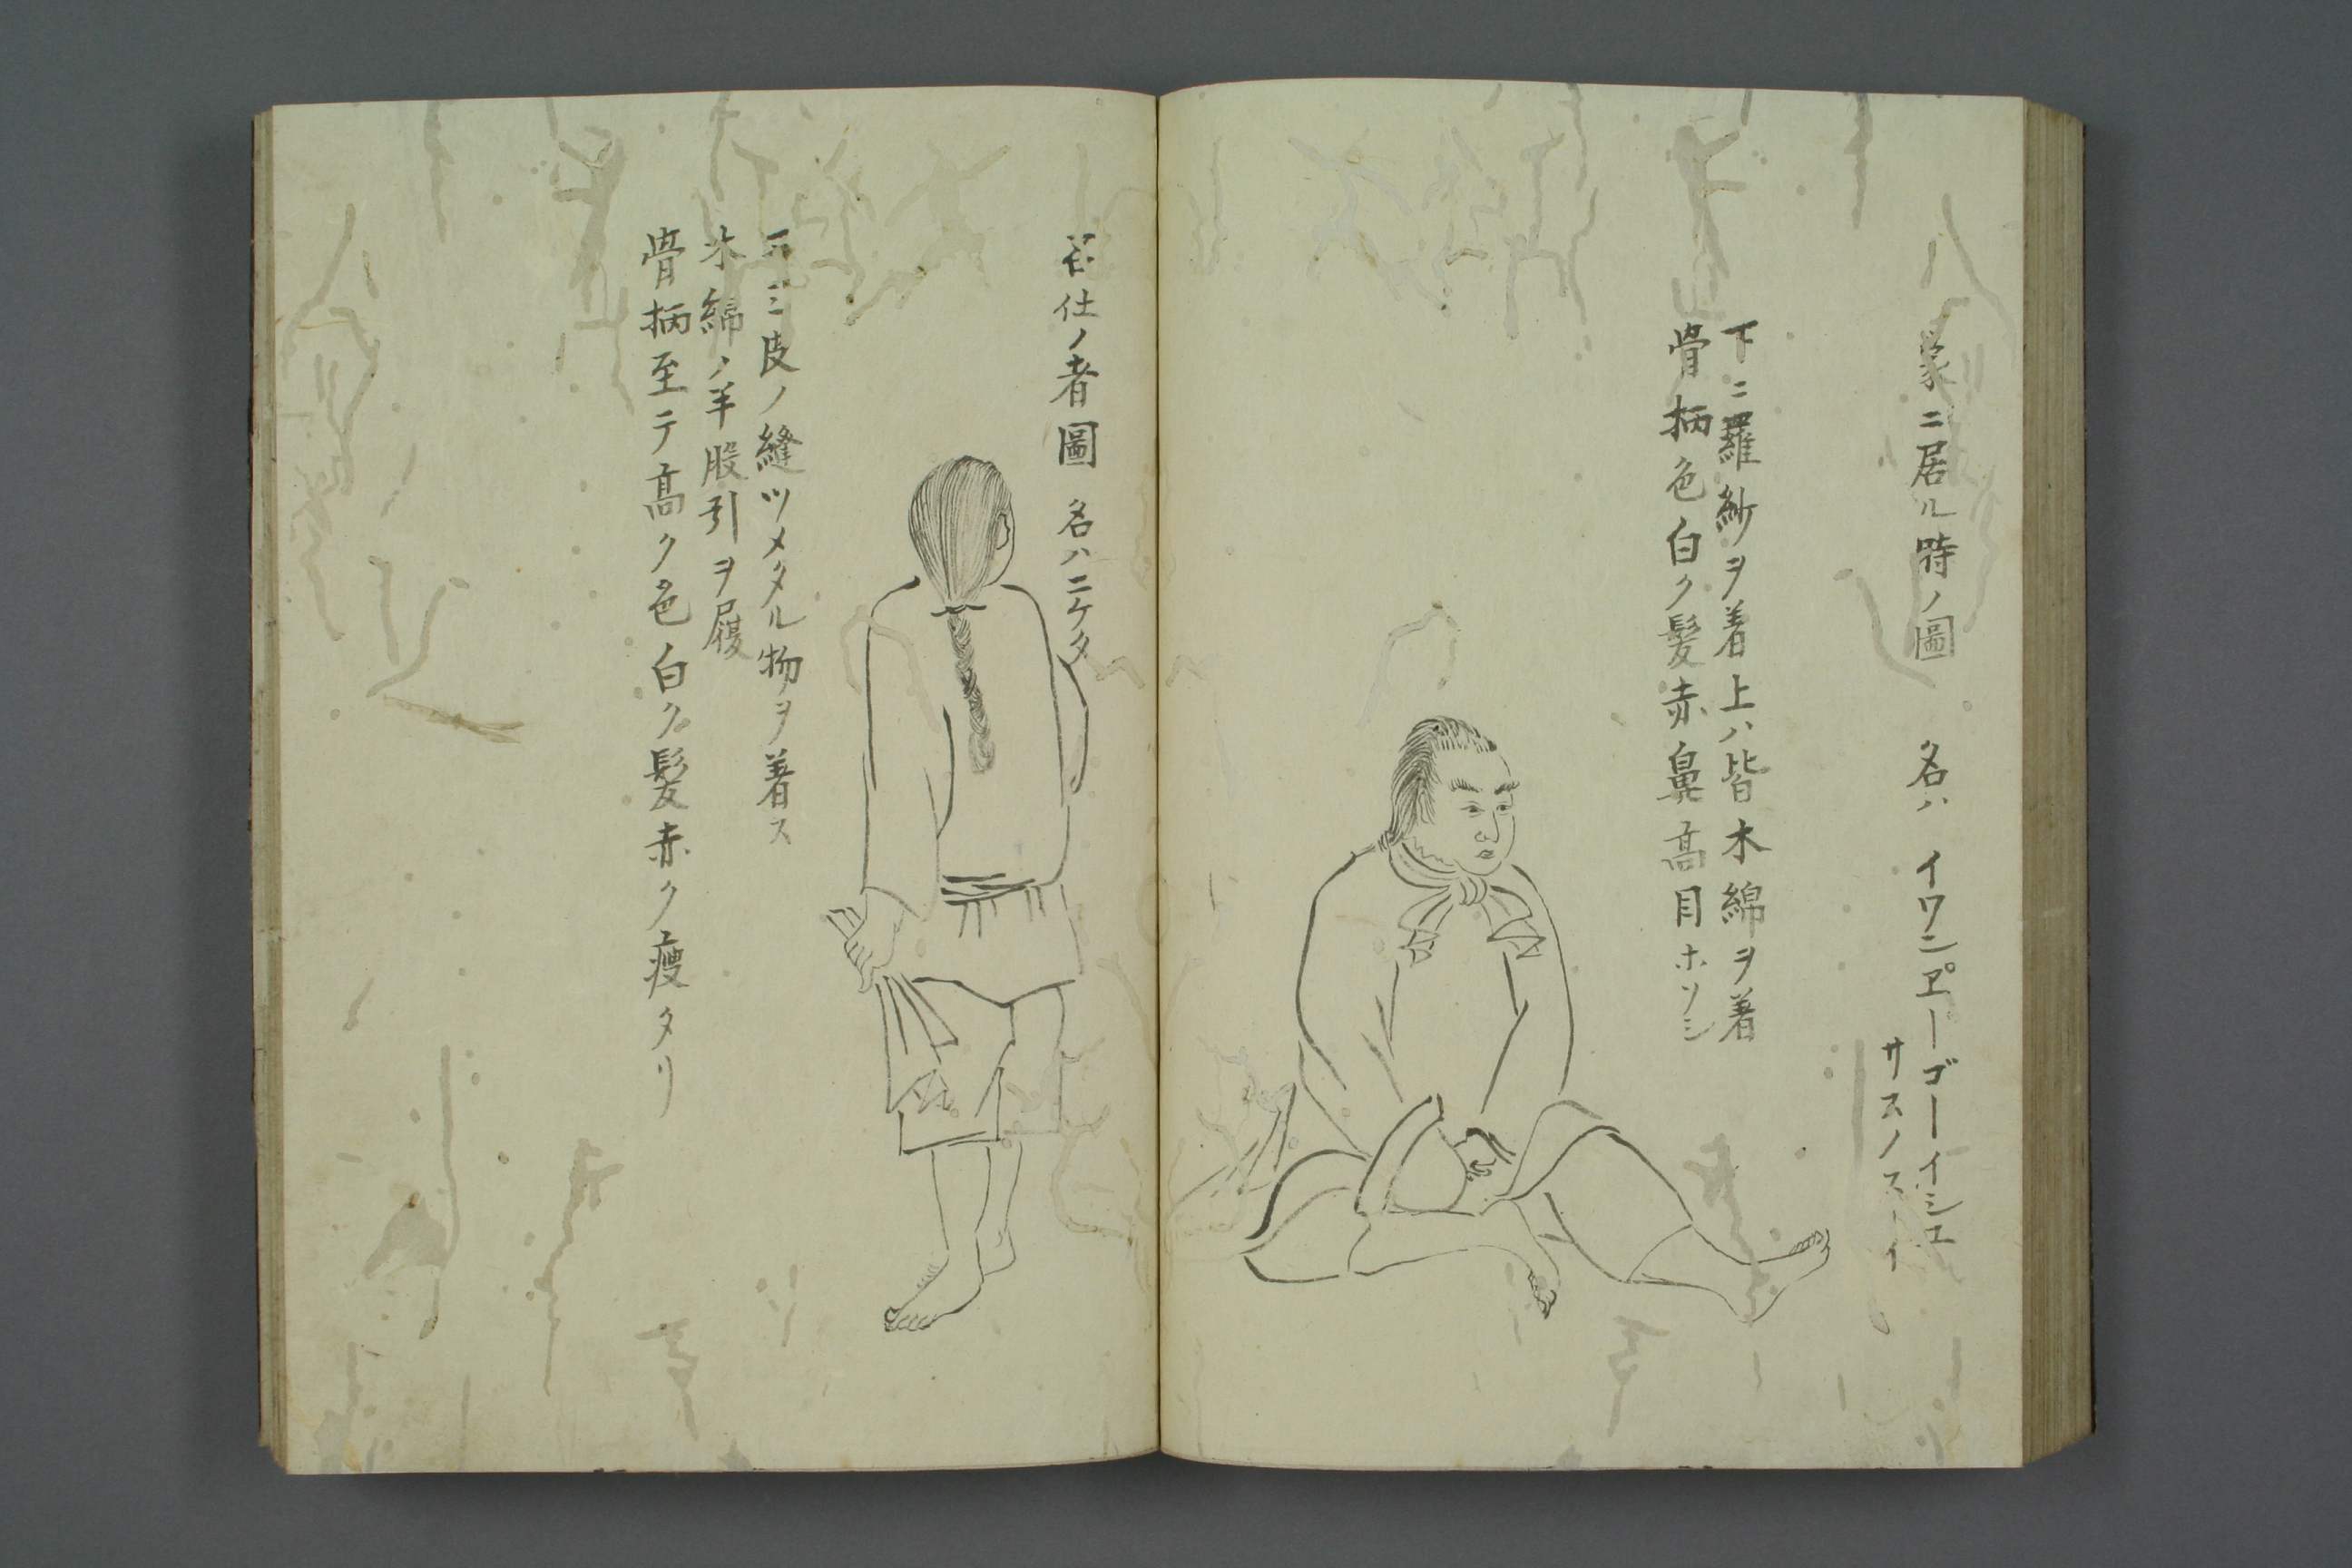 ニ居ル時ノ圖 名ハ イワンヱ゜ーゴーイシエ
サスノスーイ
下ニ羅紗ヲ着上ハ皆木綿ヲ着
骨柄色白ク髪赤鼻高目ホソシ
召仕ノ者圖 名ハニケタ
皮ノ縫ツメタル物ヲ着ス
木綿ノ半股引ヲ履
骨柄至テ高ク色白ク髪赤ク瘦タリ